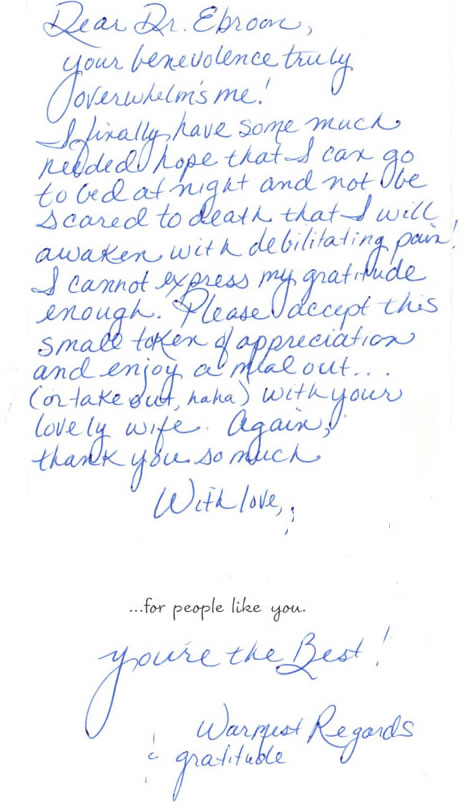 Dear Dr. Ebroon,
your benevolence truly
overwhelm's me!
I finally have some much
needed hope that I can go
to bed at night and not be
scared to death that I will
awaken with debilitating pain!
I cannot express my gratitude
enough. Please accept this
small token of appreciation
and enjoy a meal out...
(or take out, haha) with your
lovely wife. Again,
thank you so much
With love,
...for people like you.
you're the Best!
Warmest Regards
& gratitude